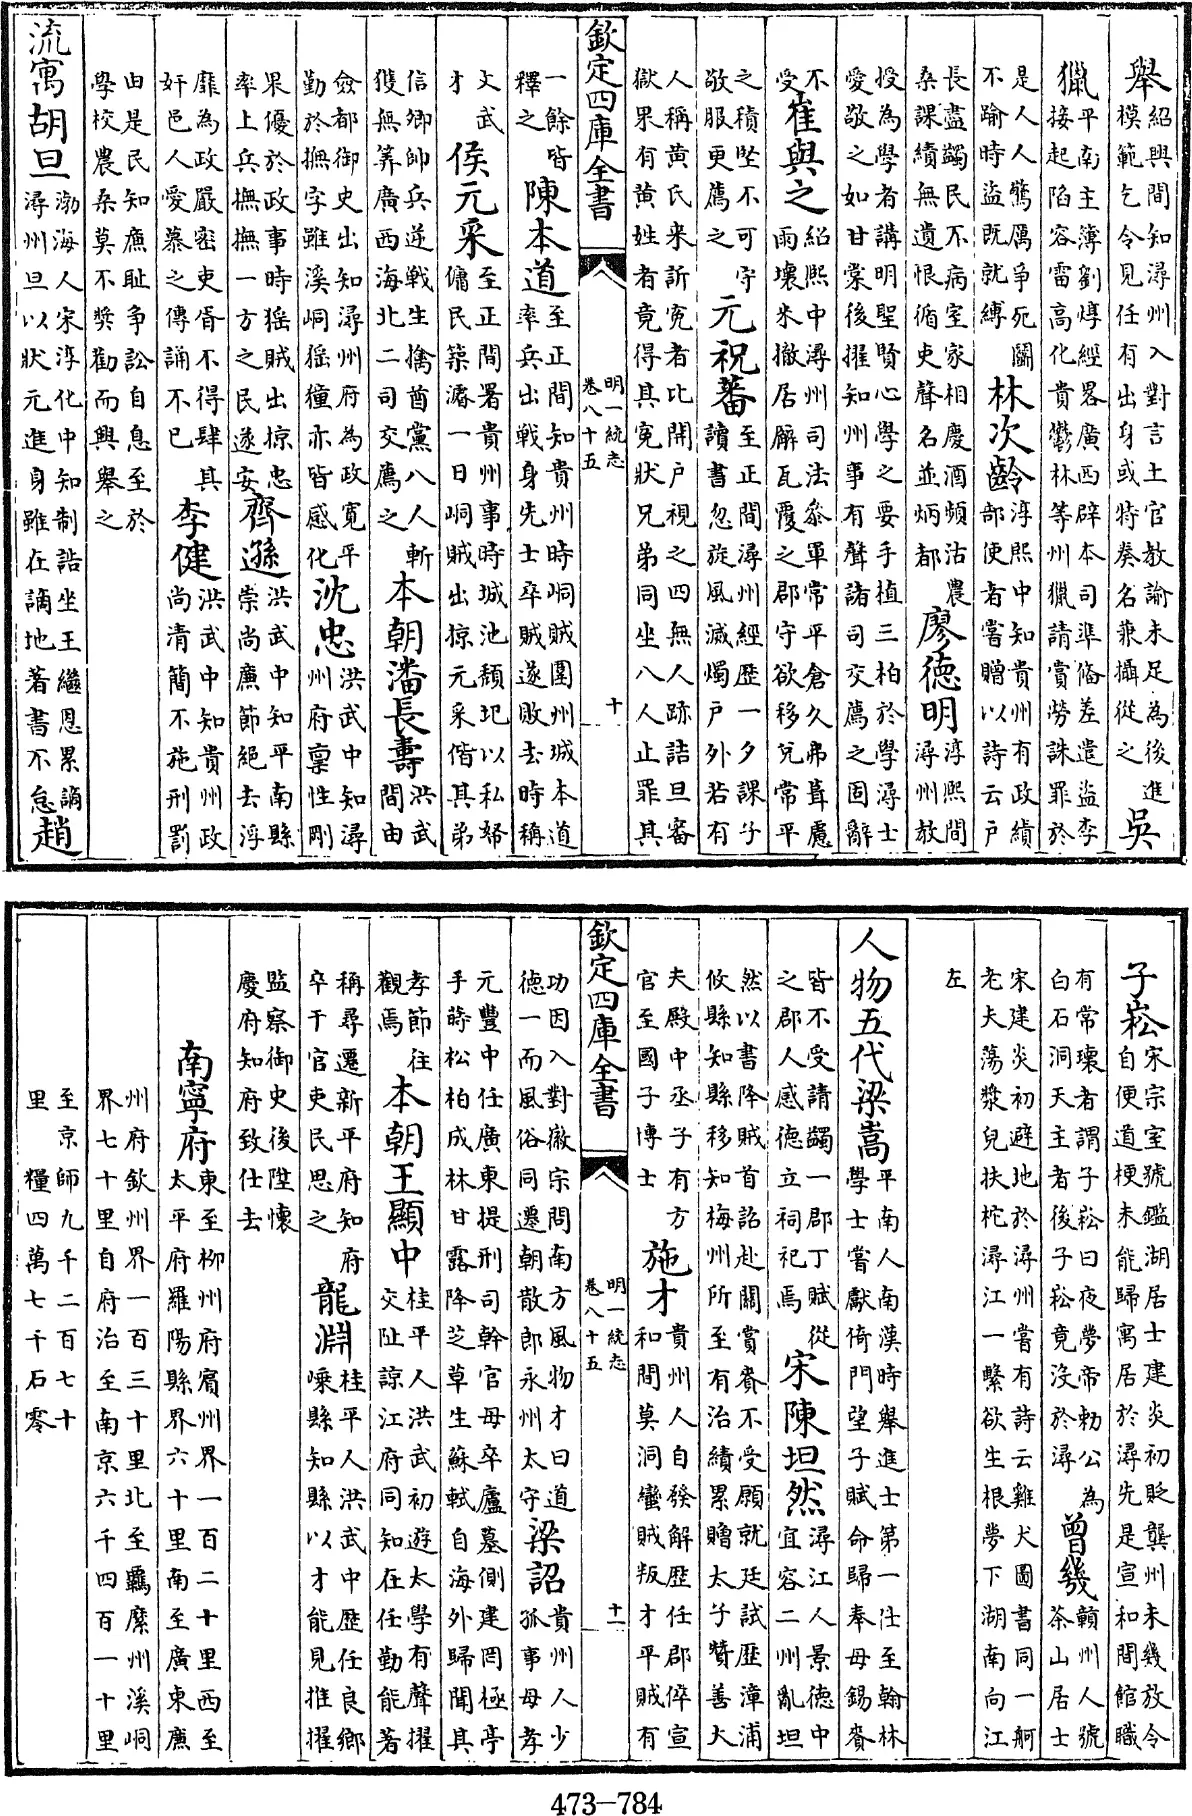 舉紹興間知潯州入對言土官教諭未足為後進
模範乞令見任有出身或特奏名兼攝從之吳
獵平南主簿劉焞經畧廣西辟本司準俻差遣盜李
接起陷容雷高化貴鬱林等州獵請賞勞誅罪於
是人人驚厲争死鬭
不踰時盜既就縛林次齡淳熙中知貴州有政績
部使者嘗贈以詩云户
長盡蠲民不病室家相慶酒頻沽農
桑課績無遺恨循吏聲名並炳都廖德明淳熙間
潯州教
授為學者講明聖賢心學之要手植三柏於學潯士
愛敬之如甘棠後擢知州事有聲諸司交薦之固辭
不
受崔與之紹熙中潯州司法叅軍常平倉久弗葺慮
雨壞米撤居廨瓦覆之郡守欲移兊常平
之積堅不可守
敬服更薦之元祝蕃至正間潯州經歴一夕課子
讀書忽旋風滅燭户外若有
人稱黄氏来訴寃者比開户視之四無人跡詰旦審
獄果有黄姓者竟得其寃狀兄弟同坐八人止罪其
欽定四庫全書
明一統志
卷八十五
十
一餘皆
釋之陳本道至正間知貴州時峒賊圍州城本道
率兵出戰身先士卒賊遂敗去時稱
文武
才侯元采至正間署貴州事時城池頽圮以私帑
傭民築濬一日峒賊出掠元采偕其弟
信卿帥兵逆戰生擒酋黨八人斬
獲無筭廣西海北二司交薦之本朝潘長壽洪武
間由
僉都御史出知潯州府為政寛平
勤於撫字雖溪峒猺獞亦皆感化沈忠洪武中知潯
州府稟性剛
果優於政事時猺賊出掠忠
率上兵撫撫一方之民遂安齊遜洪武中知平南縣
崇尚亷節絶去浮
靡為政嚴密吏胥不得肆其
奸邑人愛慕之傳誦不已李健洪武中知貴州政
尚清簡不施刑罰
由是民知亷耻争訟自息至於
學校農桑莫不奬勸而興舉之
流寓胡旦渤海人宋淳化中知制誥坐王繼恩累謫
潯州旦以狀元進身雖在謫地著書不怠趙
子崧宋宗室號鑑湖居士建炎初貶龔州未幾放令
自便道梗未能歸寓居於潯先是宣和間館職
有常壞者謂子崧曰夜夢帝勅公為
白石洞天主者後子崧竟沒於潯曾幾贑州人號
茶山居士
宋建炎初避地於潯州嘗有詩云雞犬圖書同一舸
老夫蕩槳兒扶柁潯江一繫欲生根夢下湖南向江
左
人物五代梁嵩平南人南漢時舉進士第一仕至翰林
學士嘗獻倚門望子賦命歸奉母錫賚
皆不受請蠲一郡丁賦從
之郡人感德立祠祀焉宋陳坦然潯江人景德中
宜容二州亂坦
然以書降賊首詔赴闕賞賚不受願就廷試歴漳浦
攸縣知縣移知梅州所至有治績累贈太子贊善大
夫殿中丞子有方
官至國子博士施才貴州人自發解歴任郡倅宣
和間莫洞蠻賊叛才平賊有
欽定四庫全書
明一統志
卷八十五
十一
功因入對徽宗問南方風物才曰道
德一而風俗同遷朝散郎永州太守梁詔貴州人少
孤事母孝
元豐中任廣東提刑司幹官母卒廬墓側建罔極亭
手蒔松柏成林甘露降芝草生蘇軾自海外歸聞其
孝節往
觀焉本朝王顯中桂平人洪武初遊太學有聲擢
交阯諒江府同知在任勤能著
稱尋遷新平府知府
卒于官吏民思之龍淵桂平人洪武中歴任良鄉
嵊縣知縣以才能見推擢
監察御史後陞懷
慶府知府致仕去
南寧府東至柳州府賓州界一百二十里西至
太平府羅陽縣界六十里南至廣東亷
州府欽州界一百三十里北至羈縻州溪峒
界七十里自府治至南京六千四百一十里
至京師九千二百七十
里糧四萬七千石零
473-784